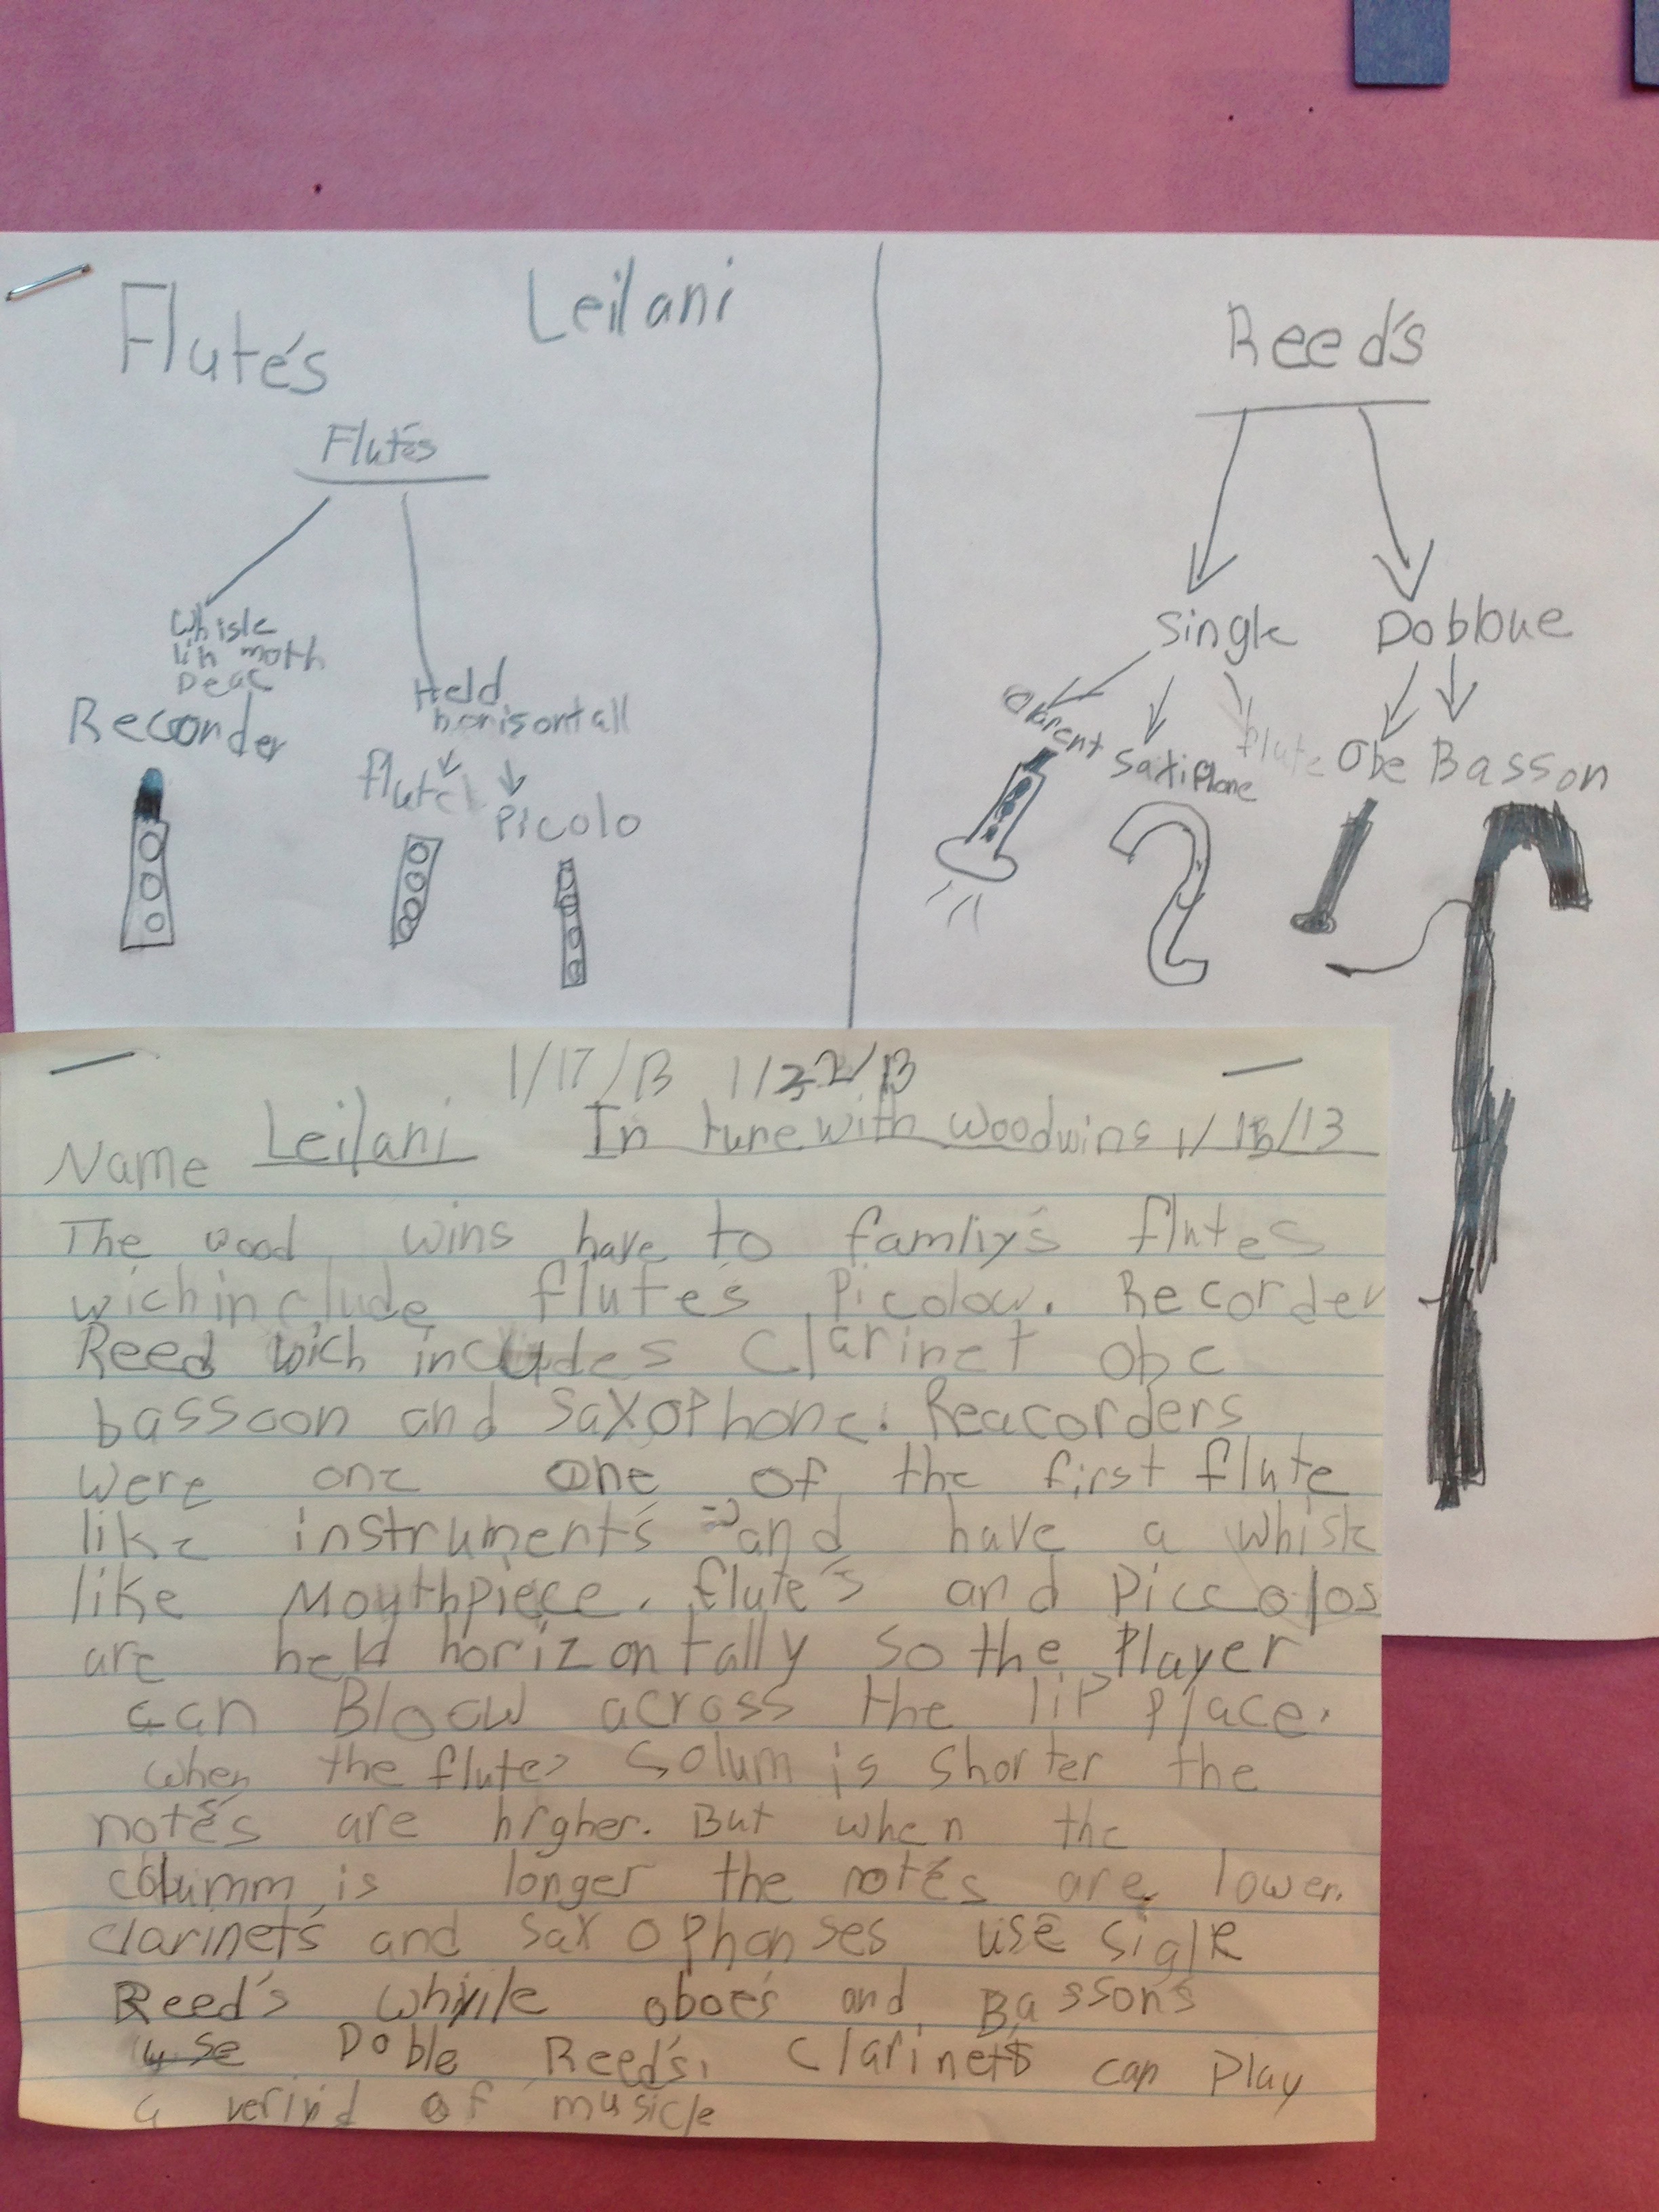 Flute's
Leilani
Flutes
Whisle
lik moth
Peac
Recorder
Held
horisontall
flute
Picolo
Reed's
Single
Dobloue
Saxiphone
flute
Obe
Basson
1/17/13 1/22/13
Name Leilani In tune with woodwins 1/15/13
The wood wins have to famliy's flutes
wich include flute's Picolow. Recorder
Reed wich includes Clarinet Obe
bassoon and Saxophone. Reacorders
were one one of the first flute
like instrument's and have a whisle
like Mouthpiece. flute's and Piccolos
are held horizontally so the Player
can Bloow across the lip place.
when the flutes colum is shorter the
note's are higher. But when the
columm is longer the note's are lower.
clarinet's and saxophonses use sigle
Reed's while oboe's and Basson's
use Doble Reed's. Clarinets can Play
a of musicle